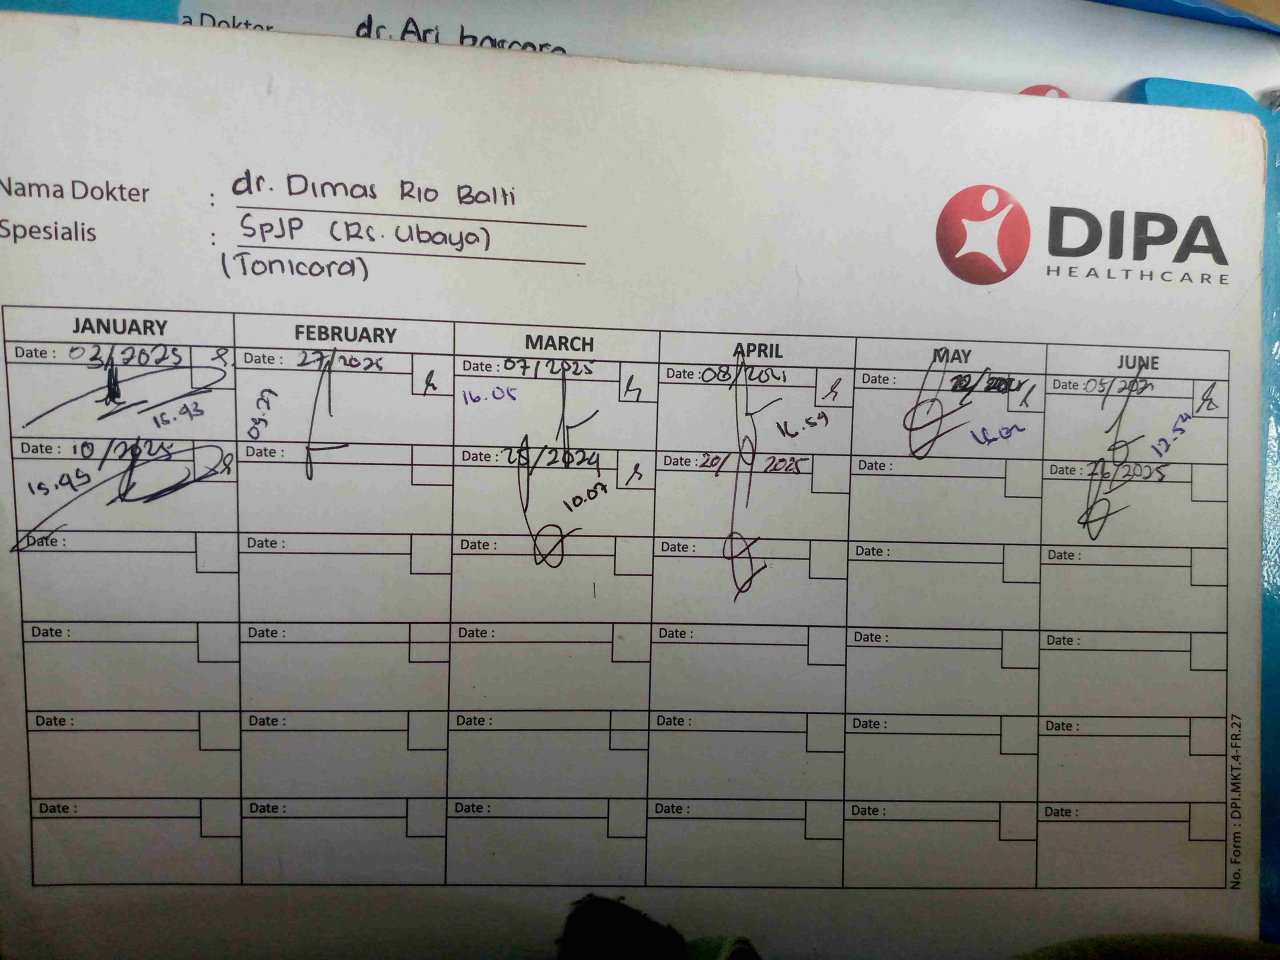 a Dokter dr. Ari
Nama Dokter : dr. Dimas Rio Balti
Spesialis : SpJP (Rs. Ubaya)
(Tonicord)
DIPA
HEALTHCARE
JANUARY FEBRUARY MARCH APRIL MAY JUNE
Date : 03/2025 Date : 27/2025 Date : 07/2025 Date : 08/ Date : Date : 05/
15.43 09.27 16.05 16.59 12.54
Date : 10/2025 Date : Date : 25/2024 Date : 20/ 2025 Date : Date : 26/2025
15.45 10.07
Date : Date : Date : Date : Date : Date :
Date : Date : Date : Date : Date : Date :
Date : Date : Date : Date : Date : Date :
Date : Date : Date : Date : Date : Date :
No. Form : DPI.MKT.4-FR.27